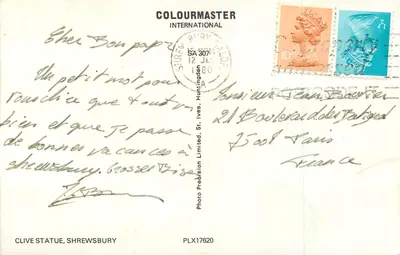 COLOURMASTER
INTERNATIONAL
Cher Bon papa
Un petit mot pour
vous dire que tout va
bien et que je passe
de bonnes vacances à
Shrewsbury. Grosses Bises
SHREWSBURY
SA 307
12 JUL
1980
Monsieur Jean
21 Boulevard des
75008 Paris
France
Photo Precision Limited, St. Ives, Huntingdon
CLIVE STATUE, SHREWSBURY
PLX17620